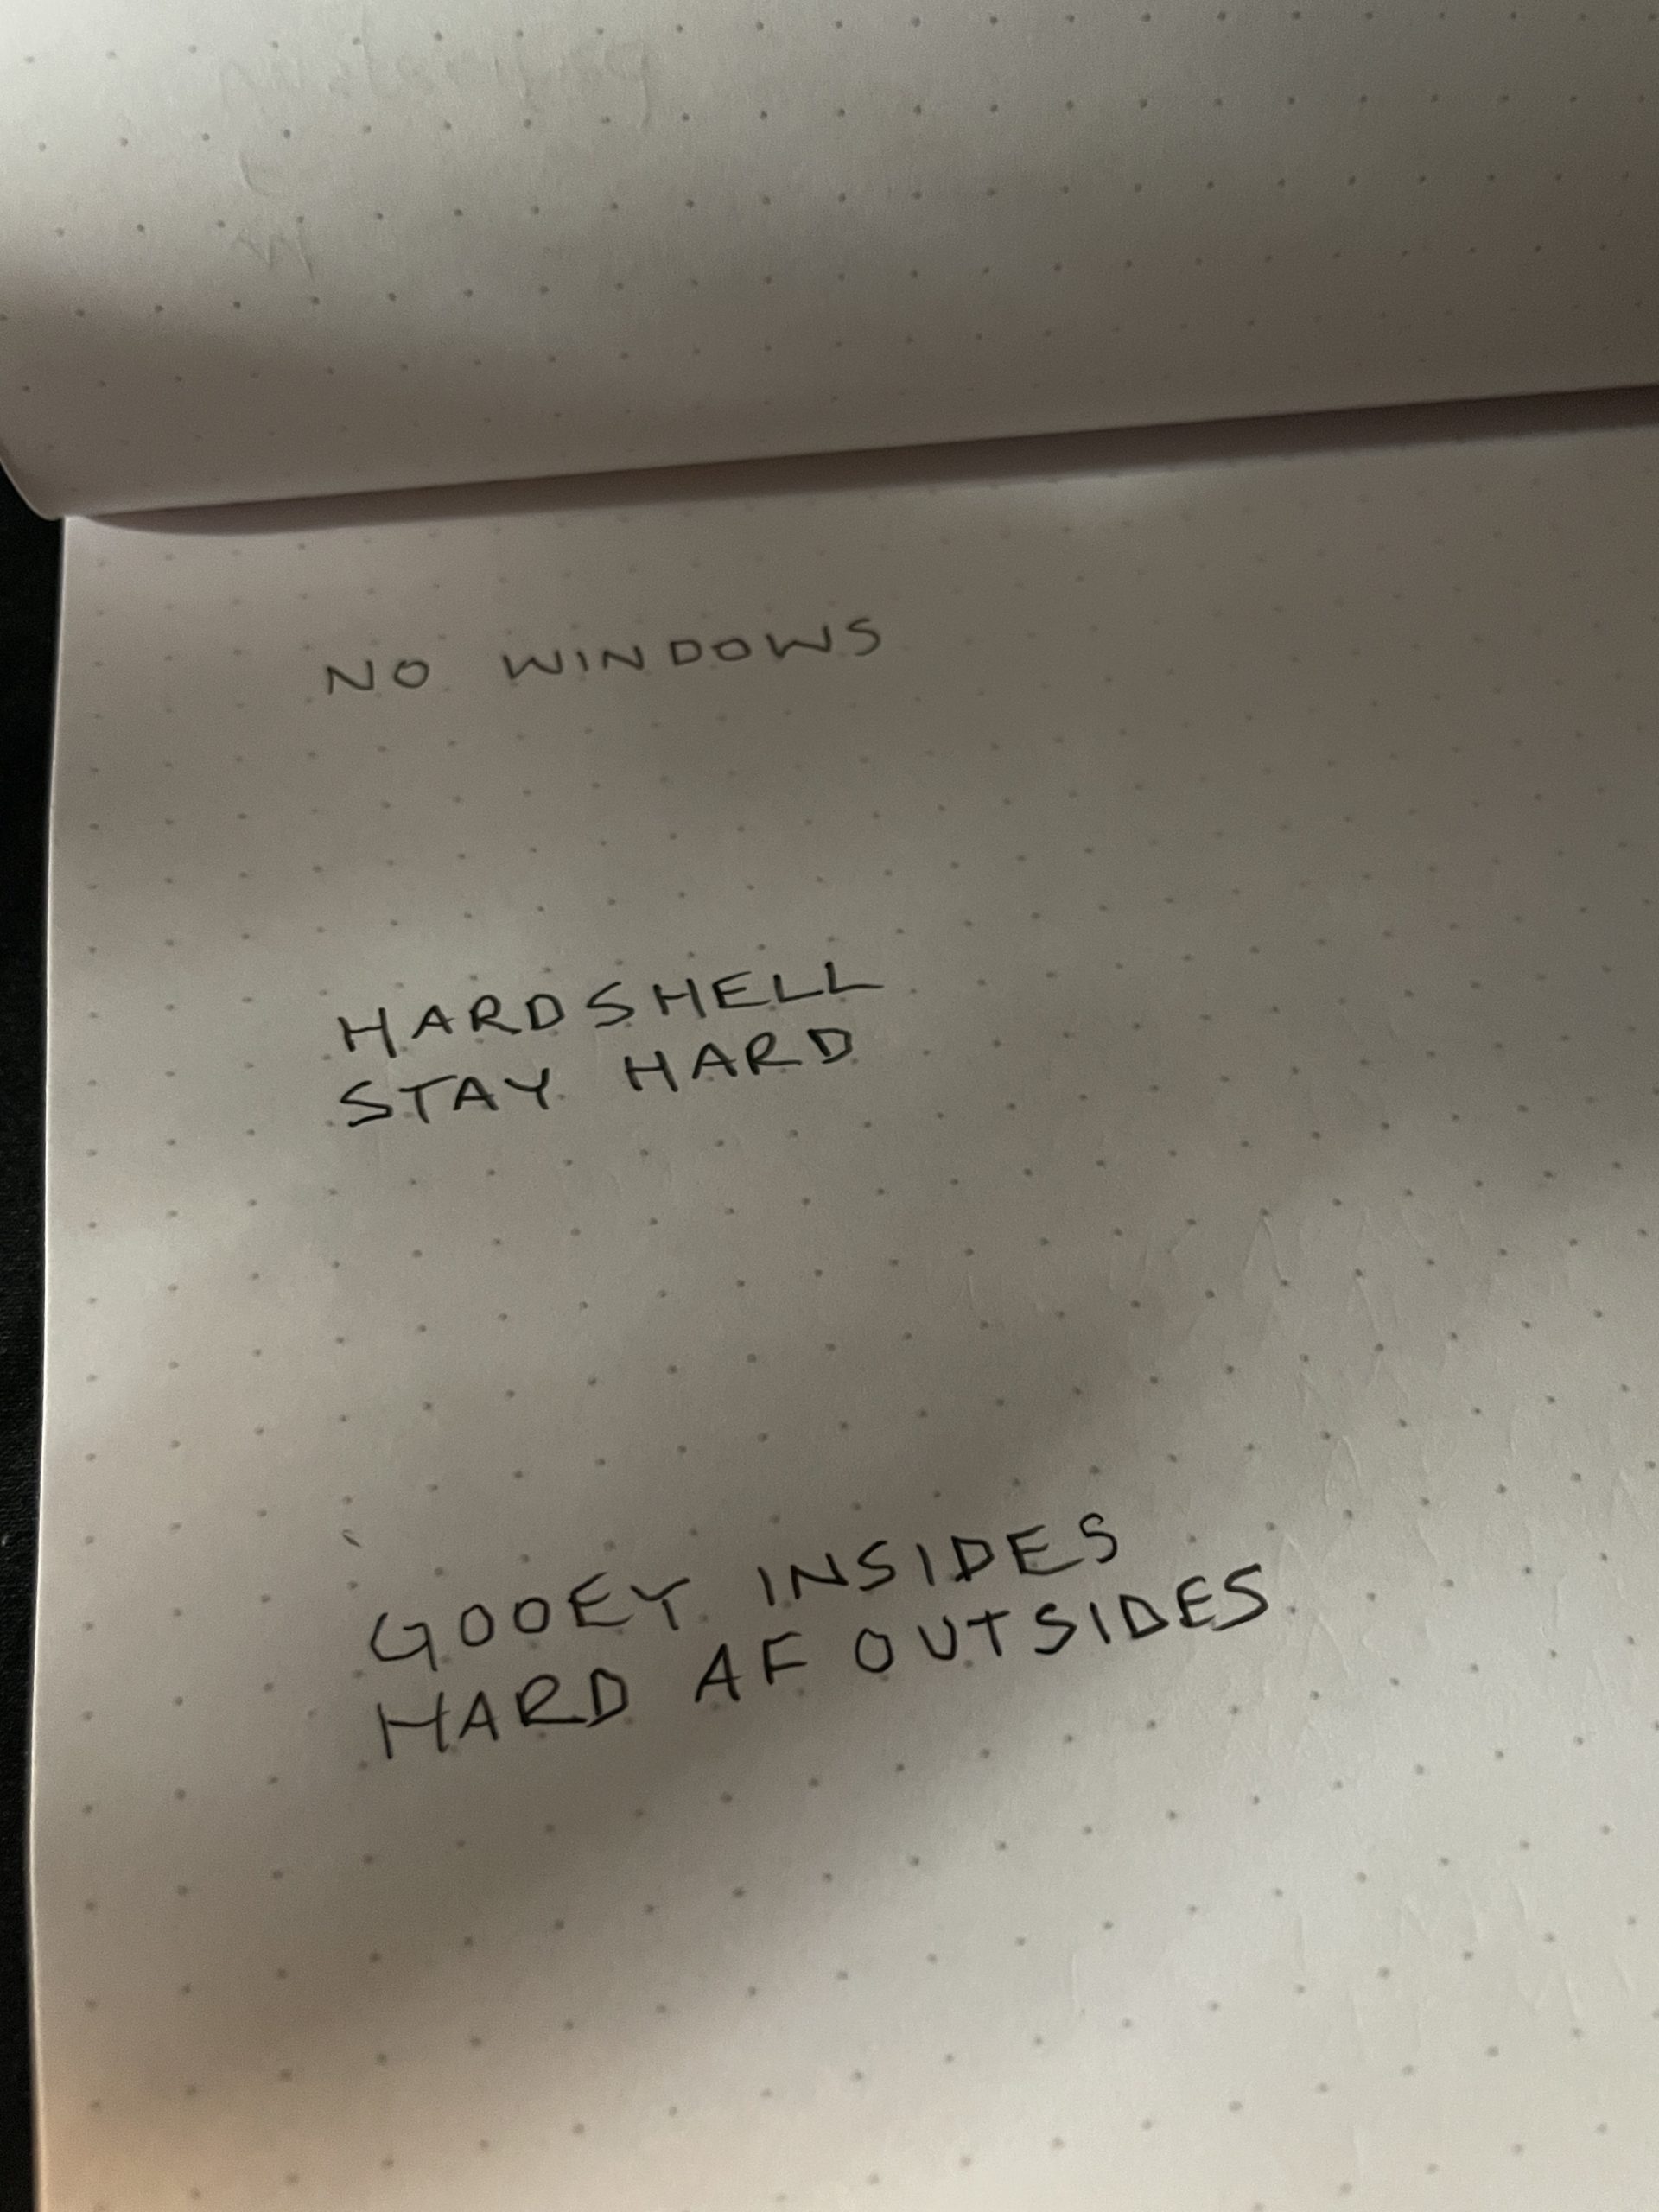 NO WINDOWS
HARDSHELL
STAY HARD
GOOEY INSIDES
HARD AF OUTSIDES